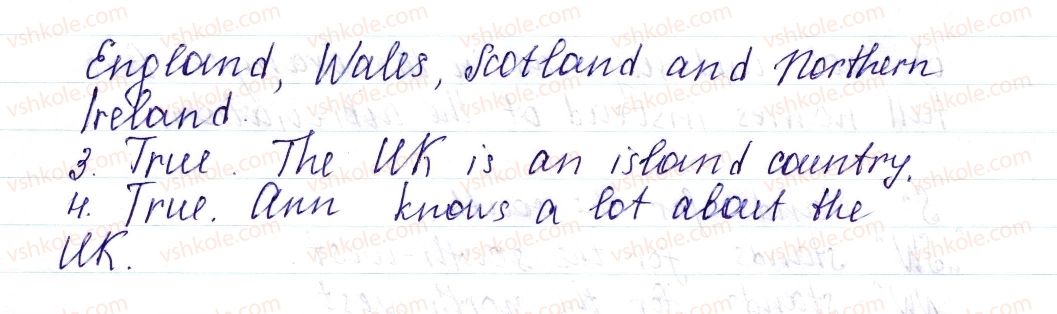 England, Wales, Scotland and Northern
Ireland.
3. True. The UK is an island country.
4. True. Ann knows a lot about the
UK.